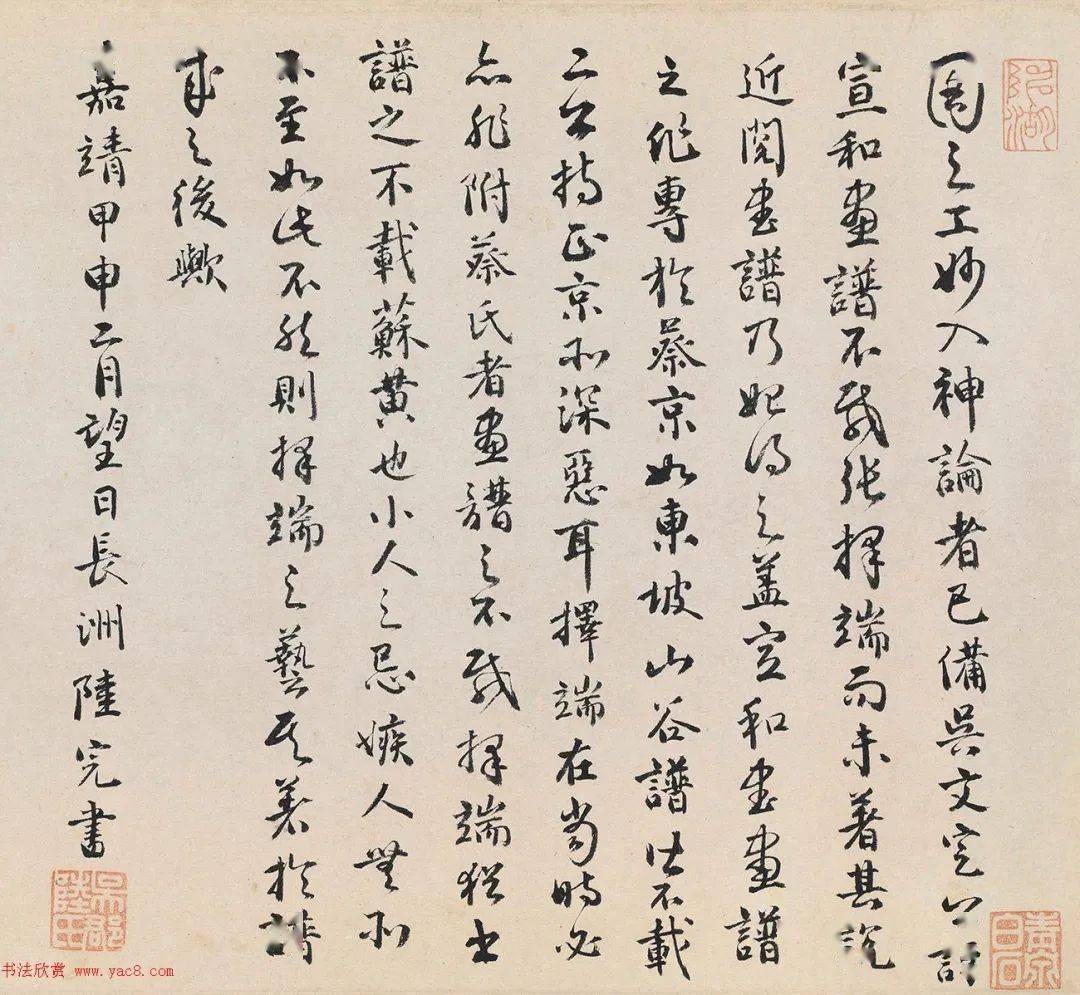 圖之工妙入神論者已備吳文定公訝
宣和畫譜不載张擇端而未著其說
近閱書譜乃始得之蓋宣和書畫譜
之作專於蔡京如東坡山谷譜皆不載
二公持正京所深惡耳擇端在當時必
亦非附蔡氏者畫譜之不載擇端猶書
譜之不載蘇黄也小人之忌嫉人無所
不至如此不然則擇端之藝其著於譜
成之後歟
嘉靖甲申二月望日長洲陸完書
书法欣赏 www.yac8.com